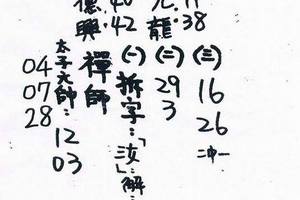 德興：40 42
九龍：11 38
禪師
(一)拆字：「汝」：解：
(二) 29 3
(三) 16 26 二中一
太子元帥：12 03
04 07 28